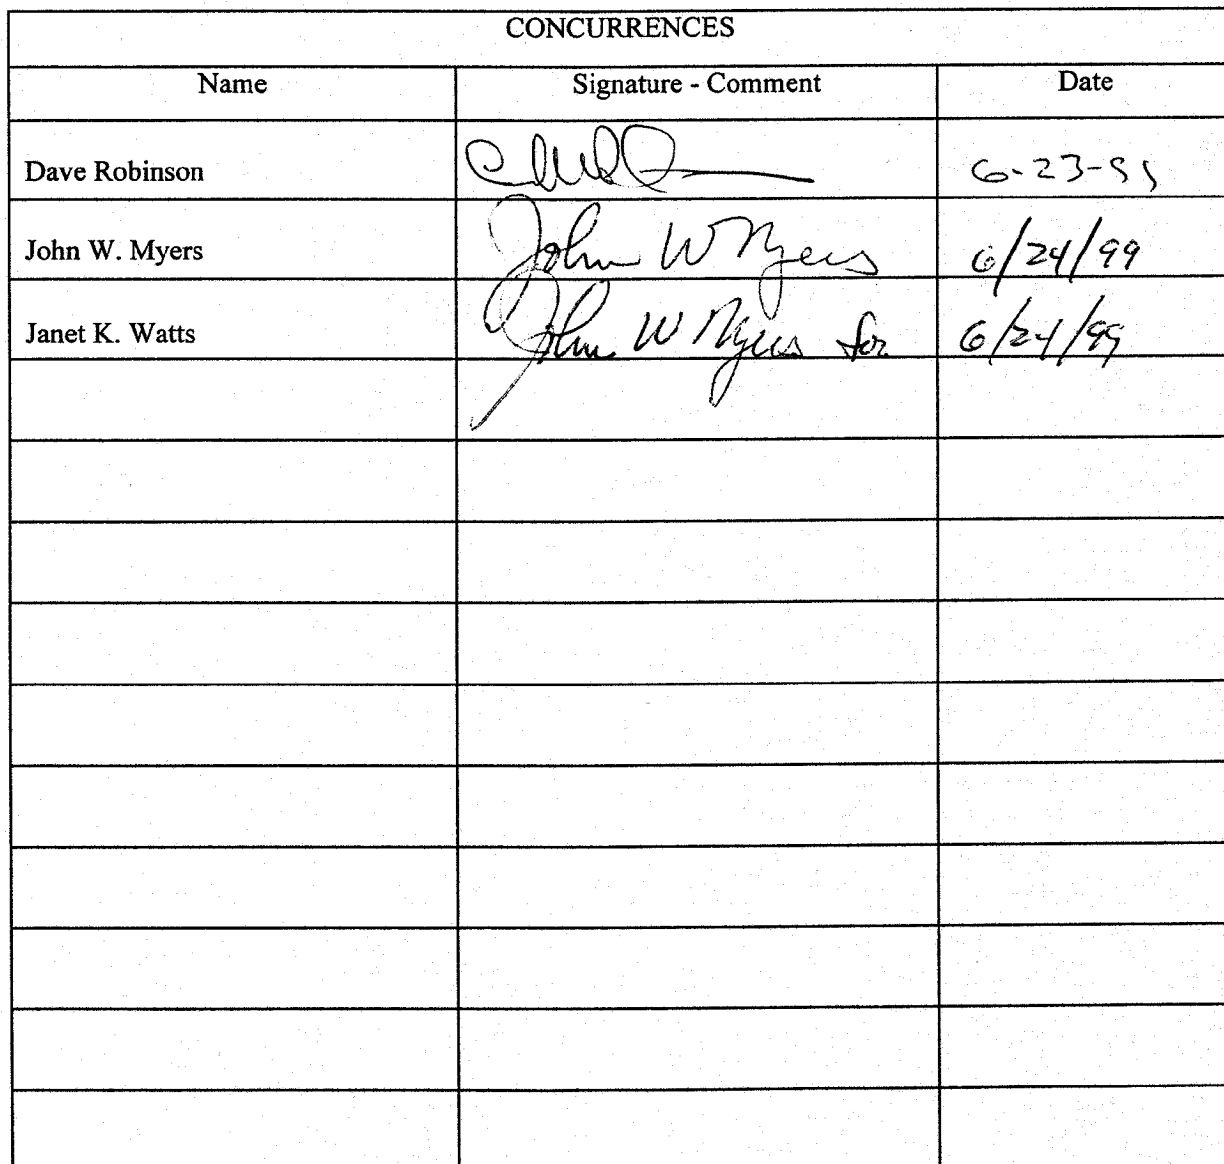 CONCURRENCES
Name Signature - Comment Date
Dave Robinson 6-23-99
John W. Myers John W Myers 6/24/99
Janet K. Watts John W Myers for 6/24/99